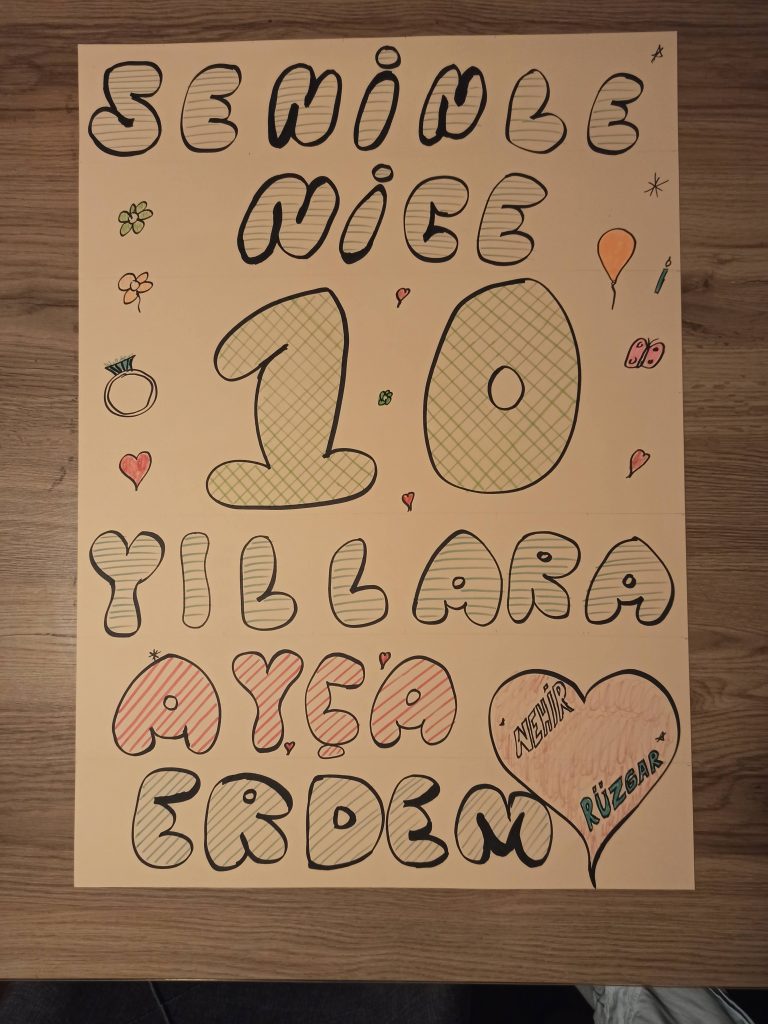 SENİNLE
NİCE
10
YILLARA
AYÇA
ERDEM
NEHİR
RÜZGAR